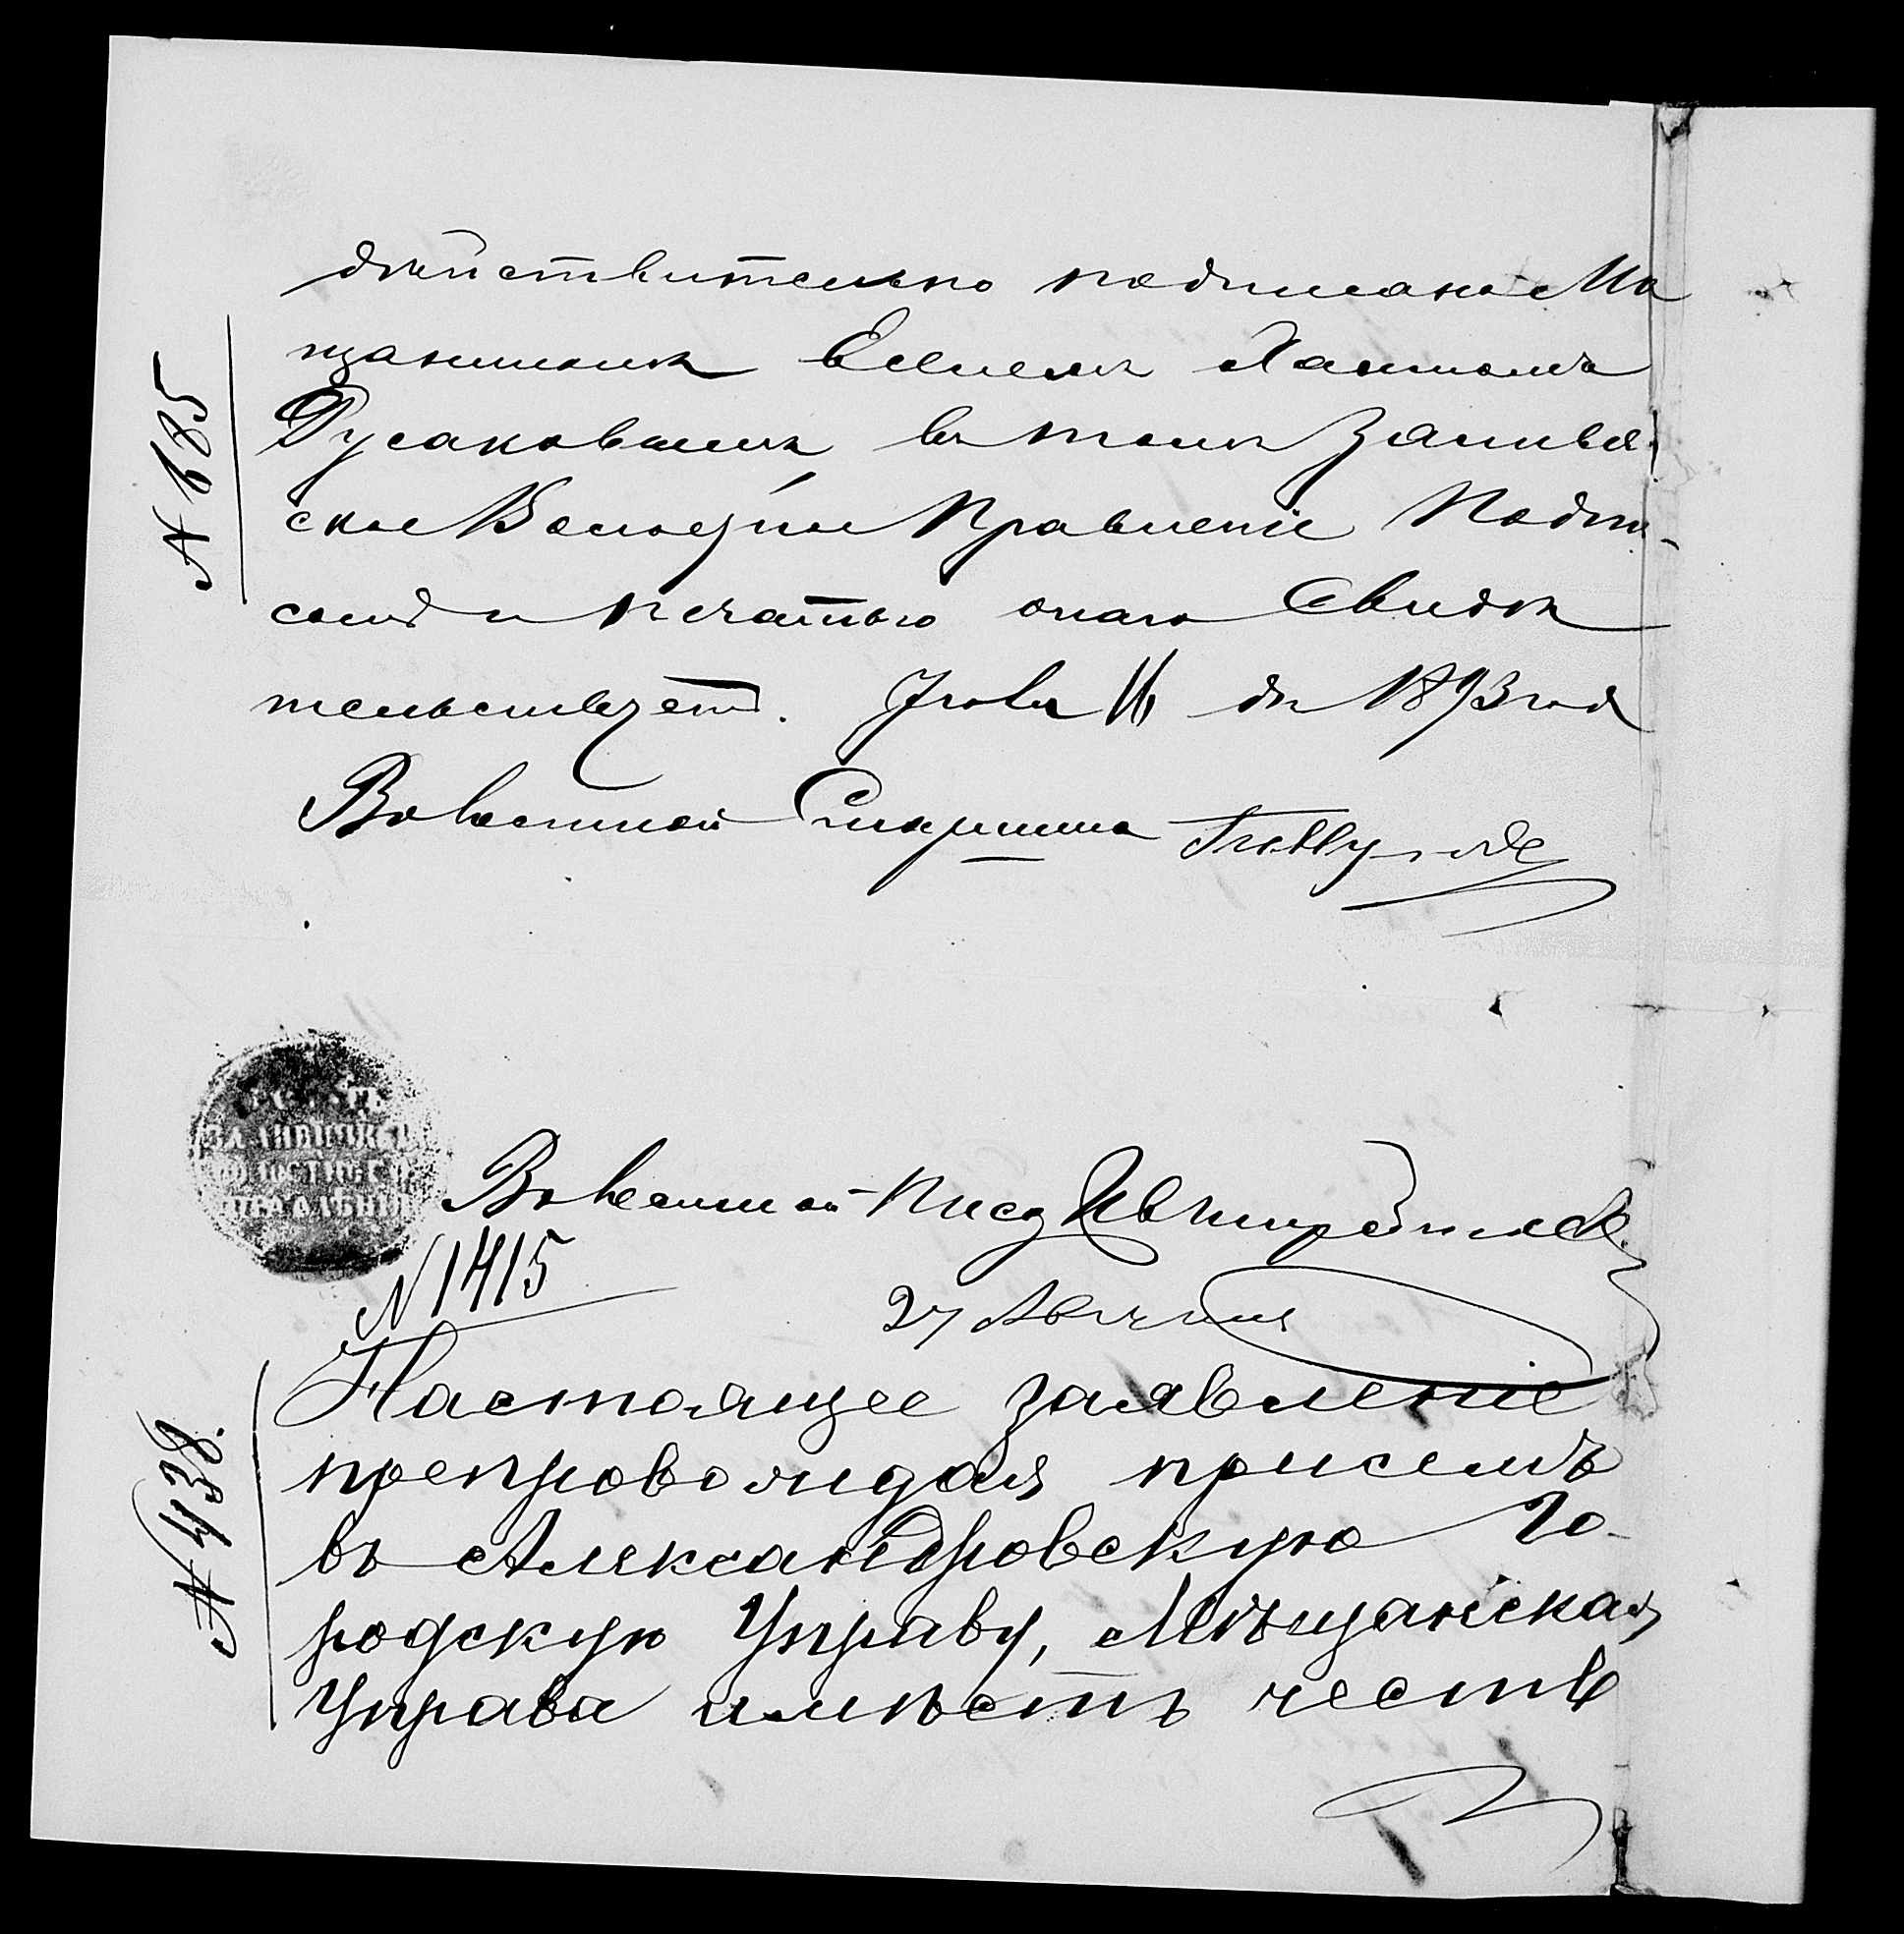 дѣйствительно подписано Мѣ
щаниномъ Евелемъ Хаимомъ
Русаковымъ, въ томъ Заливян
ское Волостное Правленіе Подпи-
сомъ и печатью онаго Свидѣ
тельствуетъ. Іюля 16 дня 1893 года
№ 685
Волостной Старшина
ПЕЧАТЬ
ВОЛОСТНОГО
ПРАВЛЕНІЯ
Волостной Писарь
№ 1415
27 Августа
№ 438.
Настоящее заявленіе
препровождая присемъ
въ Александровскую Го-
родскую Управу, Мѣщанская
Управа имѣетъ честь